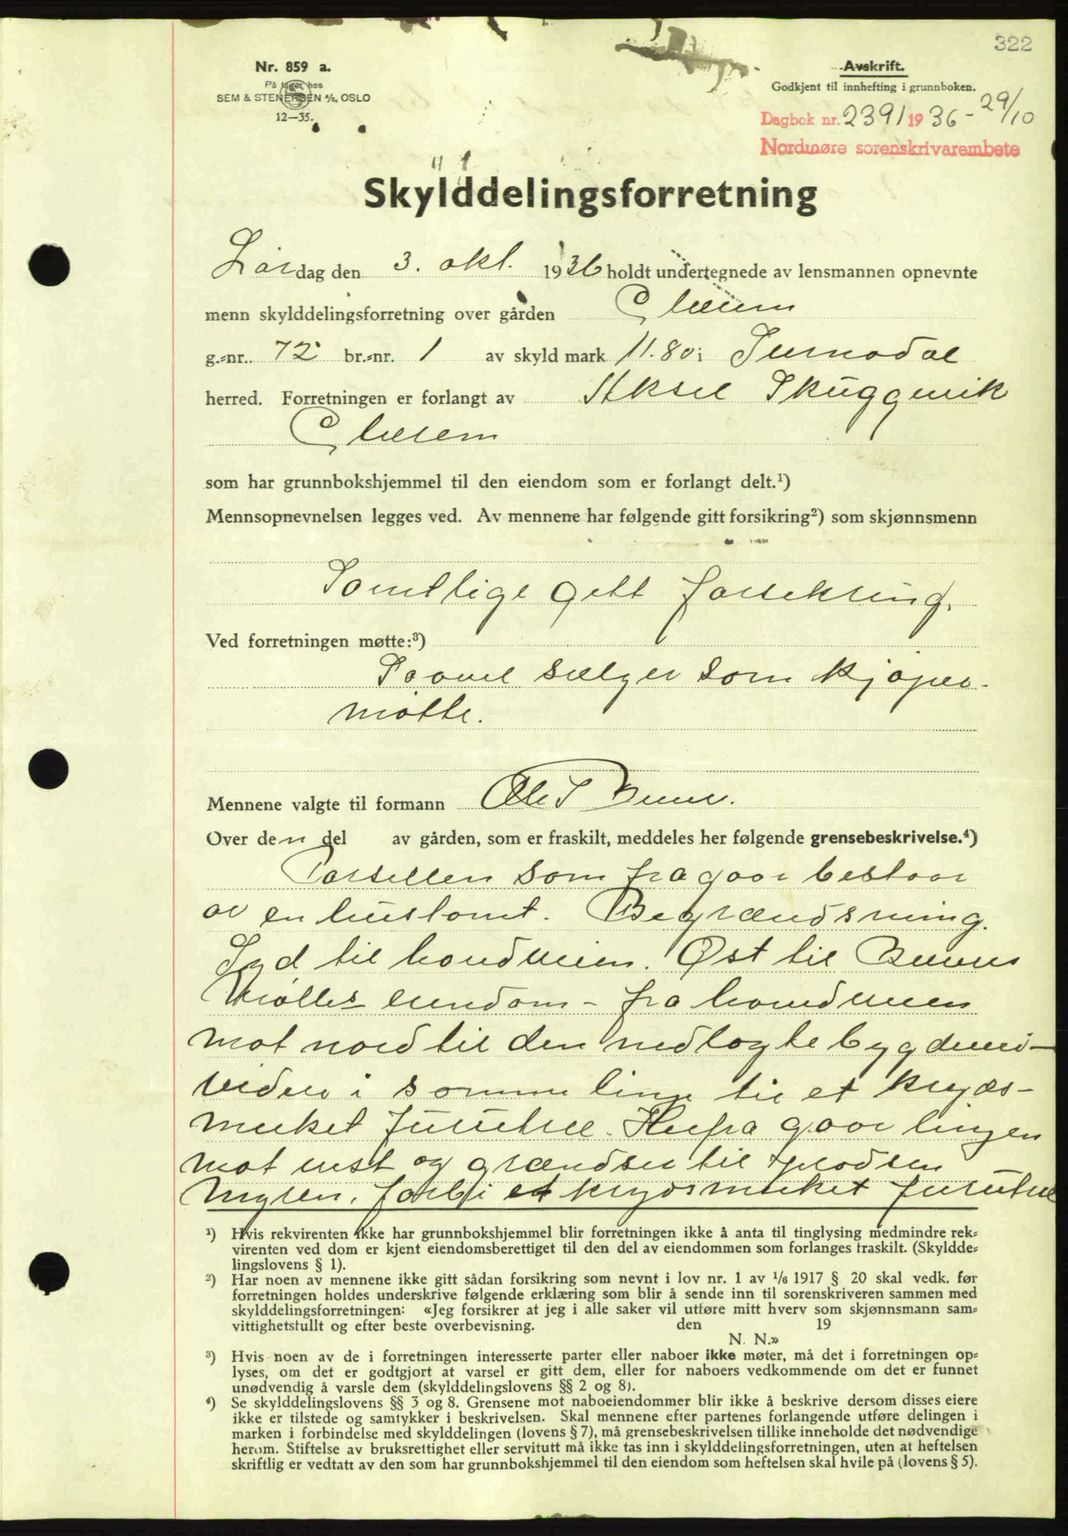 322
Nr. 859 a.
På lager hos
SEM & STENERSEN A/S, OSLO
12—35.
Avskrift.
Godkjent til innhefting i grunnboken.
Dagbok nr. 2391 1936 - 29/10
Nordmøre sorenskrivarembete
Skylddelingsforretning
Lørdag den 3. okt. 1936 holdt undertegnede av lensmannen opnevnte
menn skylddelingsforretning over gården Glærem
g.-nr. 72 br.-nr. 1 av skyld mark 11.80 i Surnadal
herred. Forretningen er forlangt av Aksel Skuggevik
Glærem
som har grunnbokshjemmel til den eiendom som er forlangt delt.¹)
Mennsopnevnelsen legges ved. Av mennene har følgende gitt forsikring²) som skjønnsmenn
Samtlige gitt forsikring.
Ved forretningen møtte:³)
Saavel sælger som kjøper
møtte.
Mennene valgte til formann Ole T Bruset.
Over den del av gården, som er fraskilt, meddeles her følgende grensebeskrivelse.⁴)
Parsellen som fragaar bestaar
av en hustomt. Begrændsning.
Syd til hovedveien. Øst til
eiendom - fra hovedveien
mot nord til den nedlagte bygdevei -
videre i samme linje til et kryds-
merket furutre. Herfra gaar linjen
mot vest og grændser til
myren, forbi et krydsmerket furutre
¹) Hvis rekvirenten ikke har grunnbokshjemmel blir forretningen ikke å anta til tinglysing medmindre rek-
virenten ved dom er kjent eiendomsberettiget til den del av eiendommen som forlanges fraskilt. (Skyldde-
lingslovens § 1).
²) Har noen av mennene ikke gitt sådan forsikring som nevnt i lov nr. 1 av 1/6 1917 § 20 skal vedk. før
forretningen holdes underskrive følgende erklæring som blir å sende inn til sorenskriveren sammen med
skylddelingsforretningen: «Jeg forsikrer at jeg i alle saker vil utføre mitt hverv som skjønnsmann sam-
vittighetsfullt og efter beste overbevisning. den 19
N. N.»
³) Hvis noen av de i forretningen interesserte parter eller naboer ikke møter, må det i forretningen op-
lyses, om det er godtgjort at varsel er gitt dem, eller for naboers vedkommende om det er funnet
unødvendig å varsle dem (skylddelingslovens §§ 2 og 8).
⁴) Se skylddelingslovens §§ 3 og 8. Grensene mot naboeiendommer blir ikke å beskrive dersom disses eiere
ikke er tilstede og samtykker i beskrivelsen. Skal mennene efter partenes forlangende utføre delingen i
marken i forbindelse med skylddelingen (lovens § 7), må grensebeskrivelsen tillike inneholde det nødvendige
herom. Stiftelse av bruksrettighet eller servitutt må ikke tas inn i skylddelingsforretningen, uten at heftelsen
skriftlig er vedtatt av den som har grunnbokshjemmel til den eiendom som heftelsen skal hvile på (lovens § 5).